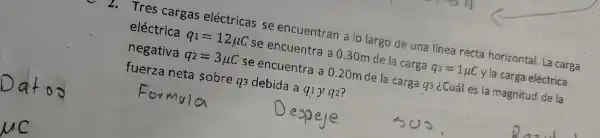 2. Tres cargas eléctricas se encuentran a lo largo de una línea recta horizontal. La carga
eléctrica q₁ = 12μC se encuentra a 0.30m de la carga q₃ = 1μC y la carga eléctrica
negativa q₂ = 3μC se encuentra a 0.20m de la carga q₃ ¿Cuál es la magnitud de la
fuerza neta sobre q₃ debida a q₁ y q₂?
Datos
Formula
Despeje
sus.
μC